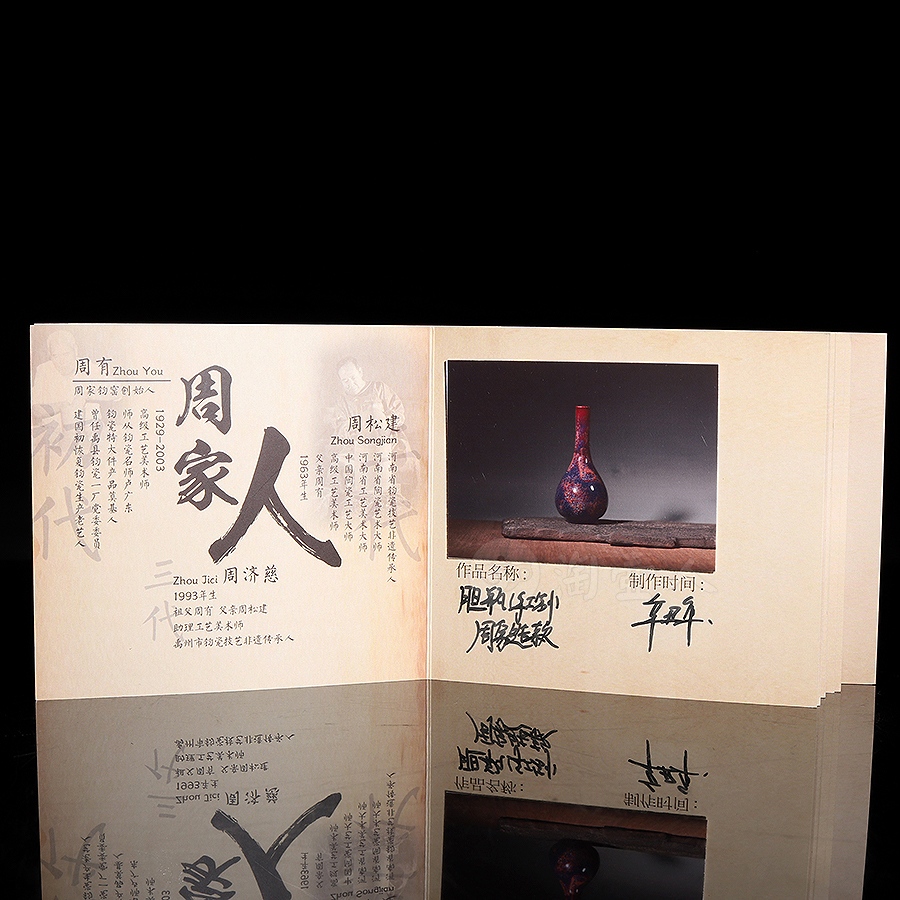 周有 Zhou You
周家钧窑创始人
1929-2003
高级工艺美术师
师从钧瓷名师卢广东
钧瓷特大件产品奠基人
曾任禹县钧瓷一厂党委委员
建国初恢复钧瓷生产老艺人
初代
周家人
周松建
Zhou Songjian
河南省钧瓷技艺非遗传承人
河南省陶瓷艺术大师
河南省工艺美术大师
中国陶瓷工艺大师
高级工艺美术师
父亲周有
1963年生
三代
Zhou Jici 周济慈
1993年生
祖父周有 父亲周松建
助理工艺美术师
禹州市钧瓷技艺非遗传承人
作品名称:
胆瓶
周家造款
制作时间:
辛丑年.